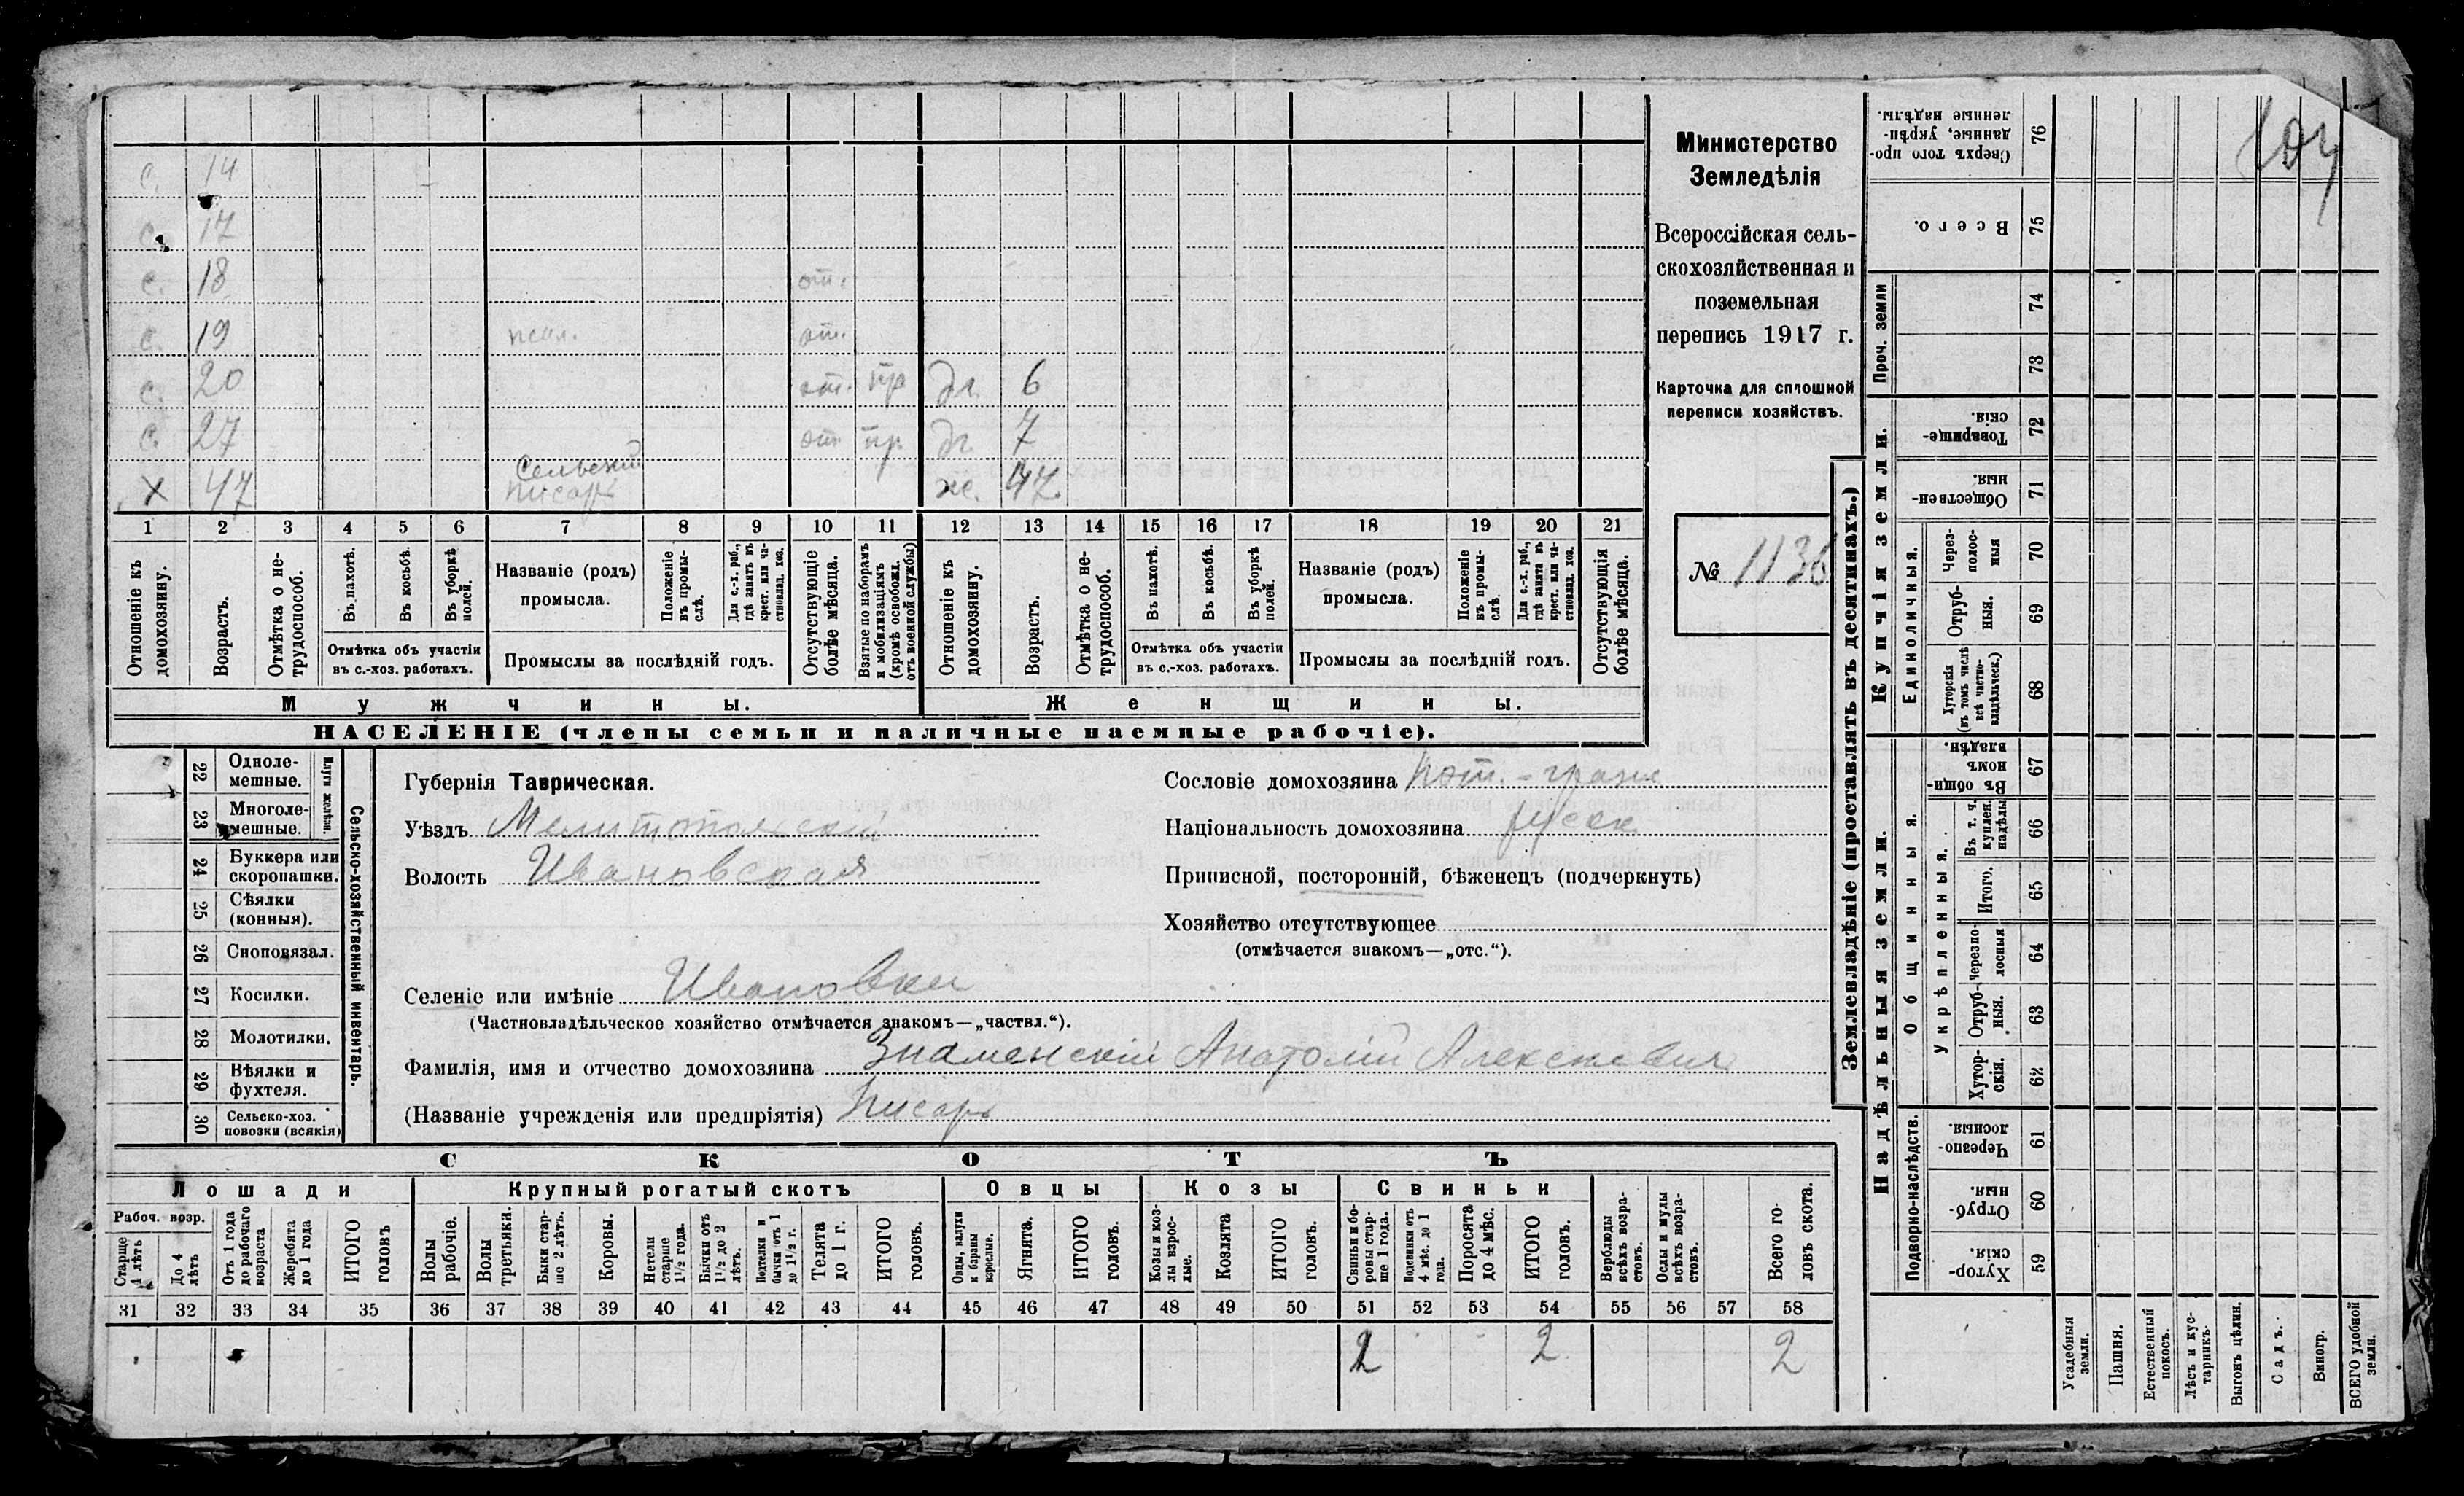 с. 14
с. 17
с. 18 от.
с. 19 от.
с. 20 от. пр дч. 6
с. 27 от. пр. дч. 7
Сельский
х 47 писарь ж. 47
1 2 3 4 5 6 7 8 9 10 11 12 13 14 15 16 17 18 19 20 21
Отношеніе къ домохозяину.
Возрастъ.
Отмѣтка о не-
трудоспособ.
Въ пахотѣ.
Въ косьбѣ.
Въ уборкѣ
полей.
Отмѣтка объ участіи
въ с.-хоз. работахъ.
Названіе (родъ)
промысла.
Положеніе
въ промы-
слѣ.
Для с.-х. раб.,
гдѣ занятъ въ
крест. или ча-
стновлад. хоз.
Промыслы за послѣдній годъ.
Отсутствующіе
болѣе мѣсяца.
Взятые по наборамъ
и мобилизаціямъ
(кромѣ освобожд.
отъ военной службы)
Отношеніе къ
домохозяину.
Возрастъ.
Отмѣтка о не-
трудоспособ.
Въ пахотѣ.
Въ косьбѣ.
Въ уборкѣ
полей.
Отмѣтка объ участіи
въ с.-хоз. работахъ.
Названіе (родъ)
промысла.
Положеніе
въ промы-
слѣ.
Для с.-х. раб.,
гдѣ занята въ
крест. или ча-
стновлад. хоз.
Промыслы за послѣдній годъ.
Отсутствующія
болѣе мѣсяца.
Мужчины.
Женщины.
НАСЕЛЕНІЕ (члены семьи и наличные наемные рабочіе).
Министерство
Земледѣлія
Всероссійская сель-
скохозяйственная и
поземельная
перепись 1917 г.
Карточка для сплошной
переписи хозяйствъ.
№ 1136
22 Одноле-
мешные.
23 Многоле-
мешные.
Плуги желѣзн.
24 Буккера или
скоропашки.
25 Сѣялки
(конныя).
26 Сноповязал.
27 Косилки.
28 Молотилки.
29 Вѣялки и
фухтеля.
30 Сельско-хоз.
повозки (всякія)
Сельско-хозяйственный инвентарь.
Губернія Таврическая.
Уѣздъ Мелитопольский
Волость Ивановская
Сословіе домохозяина пот.-граж
Національность домохозяина русск
Приписной, посторонній, бѣженецъ (подчеркнуть)
Хозяйство отсутствующее
(отмѣчается знакомъ—„отс.“).
Селеніе или имѣніе Ивановка
(Частновладѣльческое хозяйство отмѣчается знакомъ—„частвл.“).
Фамилія, имя и отчество домохозяина Знаменскій Анатолій Алексѣевич
(Названіе учрежденія или предпріятія) Писарь
СКОТЪ
Лошади
Крупный рогатый скотъ
Овцы
Козы
Свиньи
Рабоч. возр.
Старше
4 лѣтъ
До 4
лѣтъ
Отъ 1 года
до рабочаго
возраста
Жеребята
до 1 года
ИТОГО
головъ
Волы
рабочіе.
Волы
третьяки.
Быки стар-
ше 2 лѣтъ.
Коровы.
Нетели
старше
1½ года.
Бычки отъ
1½ до 2
лѣтъ.
Подтелки и
бычки отъ 1
до 1½ г.
Телята
до 1 г.
ИТОГО
головъ.
Овцы, валухи
и бараны
взрослые.
Ягнята.
ИТОГО
головъ.
Козы и коз-
лы взрос-
лые.
Козлята
ИТОГО
головъ.
Свиньи и бо-
ровы стар-
ше 1 года.
Подсвинки отъ
4 мѣс. до 1
года.
Поросята
до 4 мѣс.
ИТОГО
головъ.
Верблюды
всѣхъ возра-
стовъ.
Ослы и мулы
всѣхъ возра-
стовъ.
Всего го-
ловъ скота.
31 32 33 34 35 36 37 38 39 40 41 42 43 44 45 46 47 48 49 50 51 52 53 54 55 56 57 58
2 2 2
Землевладѣніе (проставлять въ десятинахъ.)
Купчія земли.
Надѣльныя земли.
Проч. земли
Единоличныя.
Общинныя.
Укрѣпленныя.
Подворно-наслѣдств.
Сверхъ того про-
данные, укрѣп-
ленные надѣлы. 76
Всего. 75
74
73
Товарище-
скій. 72
Обществен-
ныя. 71
Через-
полос-
ныя 70
Отруб-
ныя. 69
Хуторскія
(въ томъ числѣ
всѣ частно-
владѣльческ.) 68
Въ общи-
номъ
владѣн. 67
Въ т. ч.
куплен.
надѣлы 66
Итого. 65
Черезпо-
лосныя 64
Отруб-
ныя. 63
Хутор-
скія. 62
Черезпо-
лосныя. 61
Отруб-
ныя. 60
Хутор-
скія. 59
Усадебныя
земли.
Пашня.
Естественный
покосъ.
Лѣсъ и кус-
тарникъ.
Выгонъ цѣлин.
Садъ.
Виногр.
ВСЕГО удобной
земли.